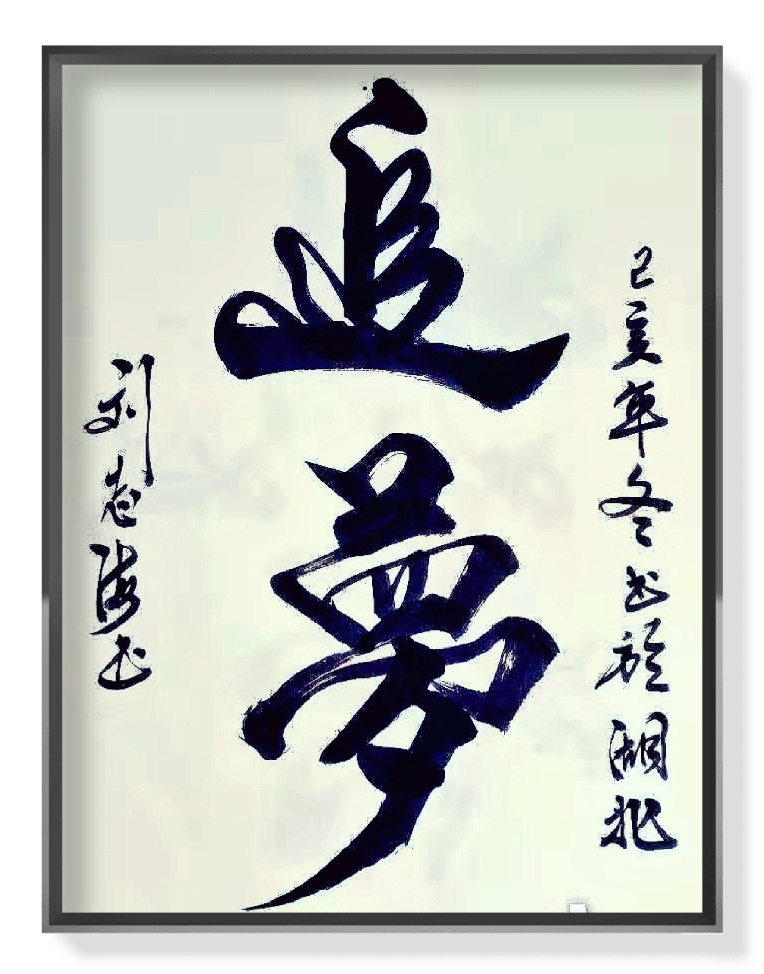 己亥年冬书於湖北
追夢
刘志海书